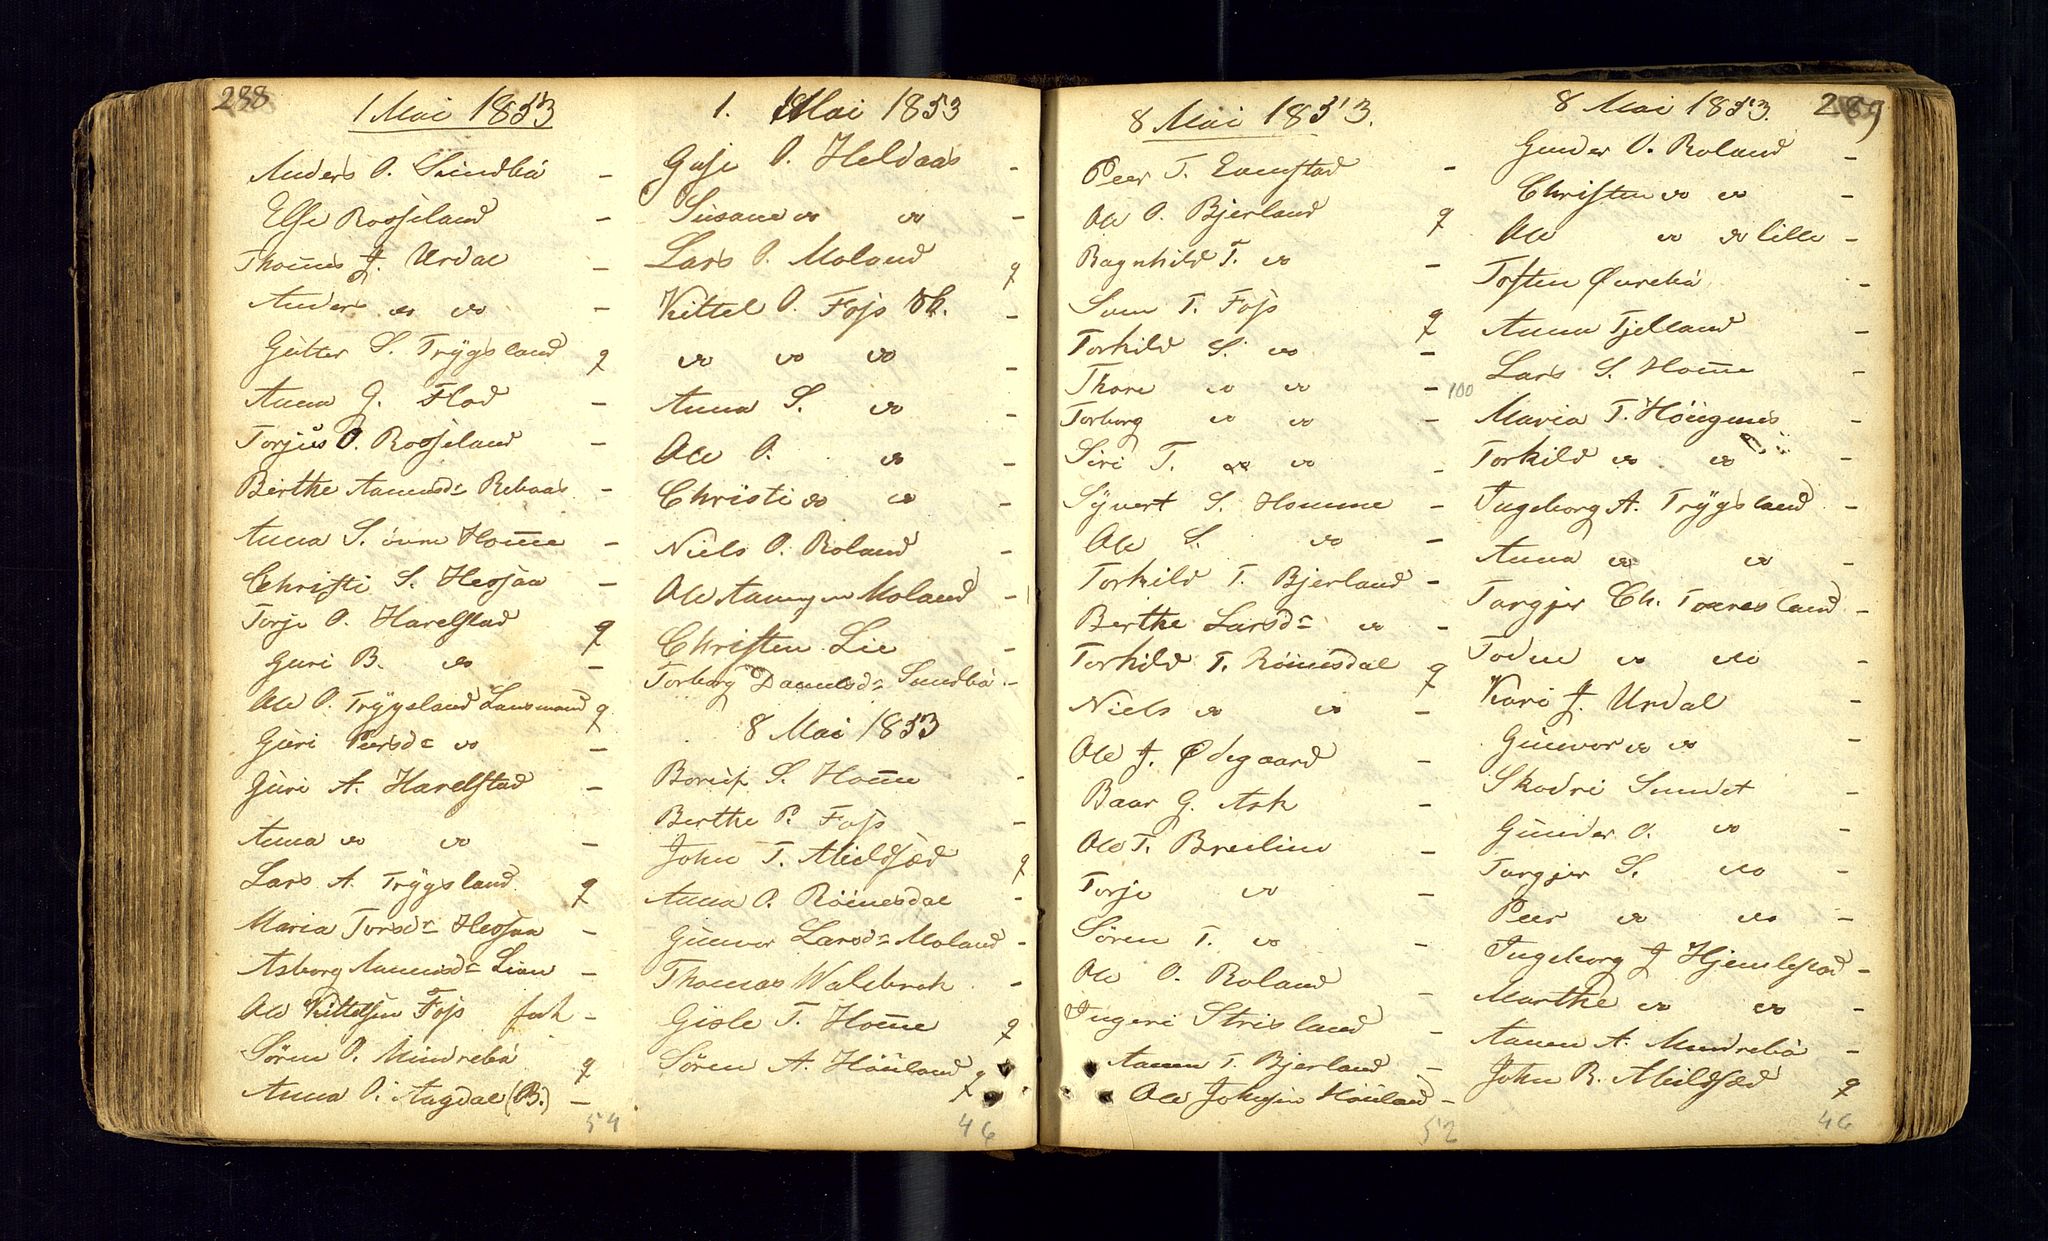 288
1 Mai 1853
Anders O. Sundbö -
Else Rosseland -
Thomes J. Urdal -
Anders do do -
Gutter S. Trygsland q
Anna G. Flad -
Torjus O. Rosseland -
Birthe Aanensdr Rebaas -
Anna S. övre Home -
Christi S. Hessaa -
Torje O. Harelstad q
Guri B. do -
Ole O. Trygsland Lansmand q
Guri Peersdr do -
Guri A. Harelstad -
Anna do do -
Lars A. Trygsland q
Maria Torsdr Hessaa -
Asborg Aanensdr Lian -
Ole Kittelsen Foss -
Sören O. Mindrebö q
Anna O. Aagdal (B.) -
54
1. Mai 1853
O. Heldaas -
Susane do do -
Lars O. Moland q
Kittel O. Foss -
do do do -
Anna S. do -
Ole O. do -
Christi do do -
Niels O. Roland -
Ole Aanensen Moland -
Christen Lie -
Torborg Danielsdr Sundbö -
8 Mai 1853
S. Home -
Berthe P. Foss -
John T. Meldsæd q
Anna O. Röinesdal -
Gunvor Larsdr Moland -
Thomas Walebrok -
Gisle T. Home q
Sören A. Höiland q
46
8 Mai 1853.
Peer T. -
Ole O. Bjerland q
Ragnhild T. do -
Sven T. Foss q
Torkild S. do -
Thore do do -
Torborg do do -
Siri T. do do -
Syvert S. Homme -
Ole S. do -
Torkild T. Bjerland -
Berthe Larsdr do -
Torkild T. Röinesdal q
Niels do do -
Ole J. Ödegaard -
Baar G. Ask -
Ole T. Breilim -
Torje do -
Sören T. do -
Ole O. Roland -
Ingeri Strisland -
Aanen T. Bjerland -
Ole Johnsen Höiland -
52
8 Mai 1853. 289
Gunder O. Roland -
Christen do do -
Ole do do lille -
Tosten Övrebö -
Anna Tjelland -
Lars S. Home -
100
Maria T. Höugnes -
Torkild do do -
Ingeborg A. Trygsland -
Anna do do -
Targjer Ch. Toeresland -
Todne do do -
Kari J. Urdal -
Gunvor do do -
Skodri Sundet -
Gunder O. do -
Targjer S. do -
Peer do do -
Ingeborg J Hjemlestad -
Marthe do do -
Aanen A. Mindrebö -
John R. Meldsæd q
46